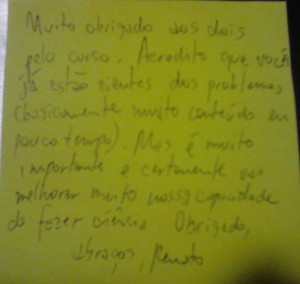 Muito obrigado aos dois
pelo curso. Acredito que vocês
já estão cientes dos problemas
(basicamente muito conteúdo em
pouco tempo). Mas é muito
importante e certamente vai
melhorar muito nossa capacidade
de fazer ciência. Obrigado,
Abraços, Renato